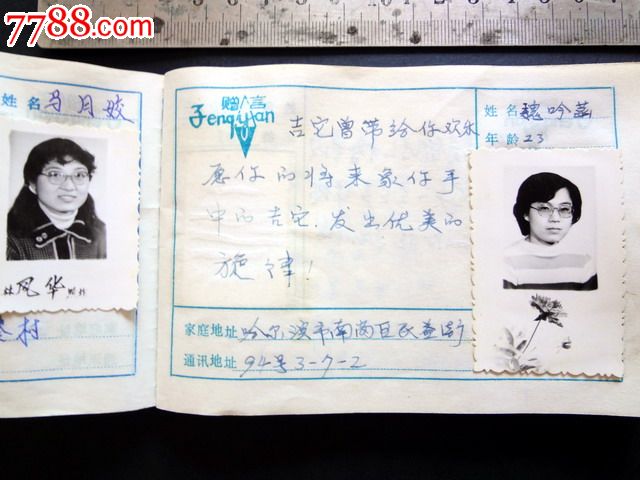 7788.com
姓名 马月姣
林风华照相
村
赠言
Fenqiyuan
吉它曾带给你欢乐
愿你的将来象你手
中的吉它.发出优美的
旋律!
姓名 魏吟
年龄 23
家庭地址 哈尔滨市南岗区民益街
通讯地址 94号3-7-2